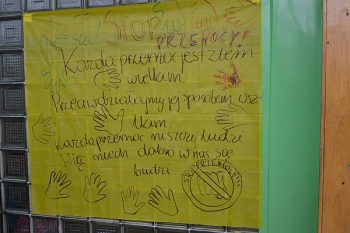 STOP
PRZEMOCY!
Każda przemoc jest złem
wielkim
Przeciwdziałajmy jej sposobem wsz-
lkim
każda przemoc niszczy ludzi
Więc niech dobro w nas się
budzi
STOP PRZEMOCY